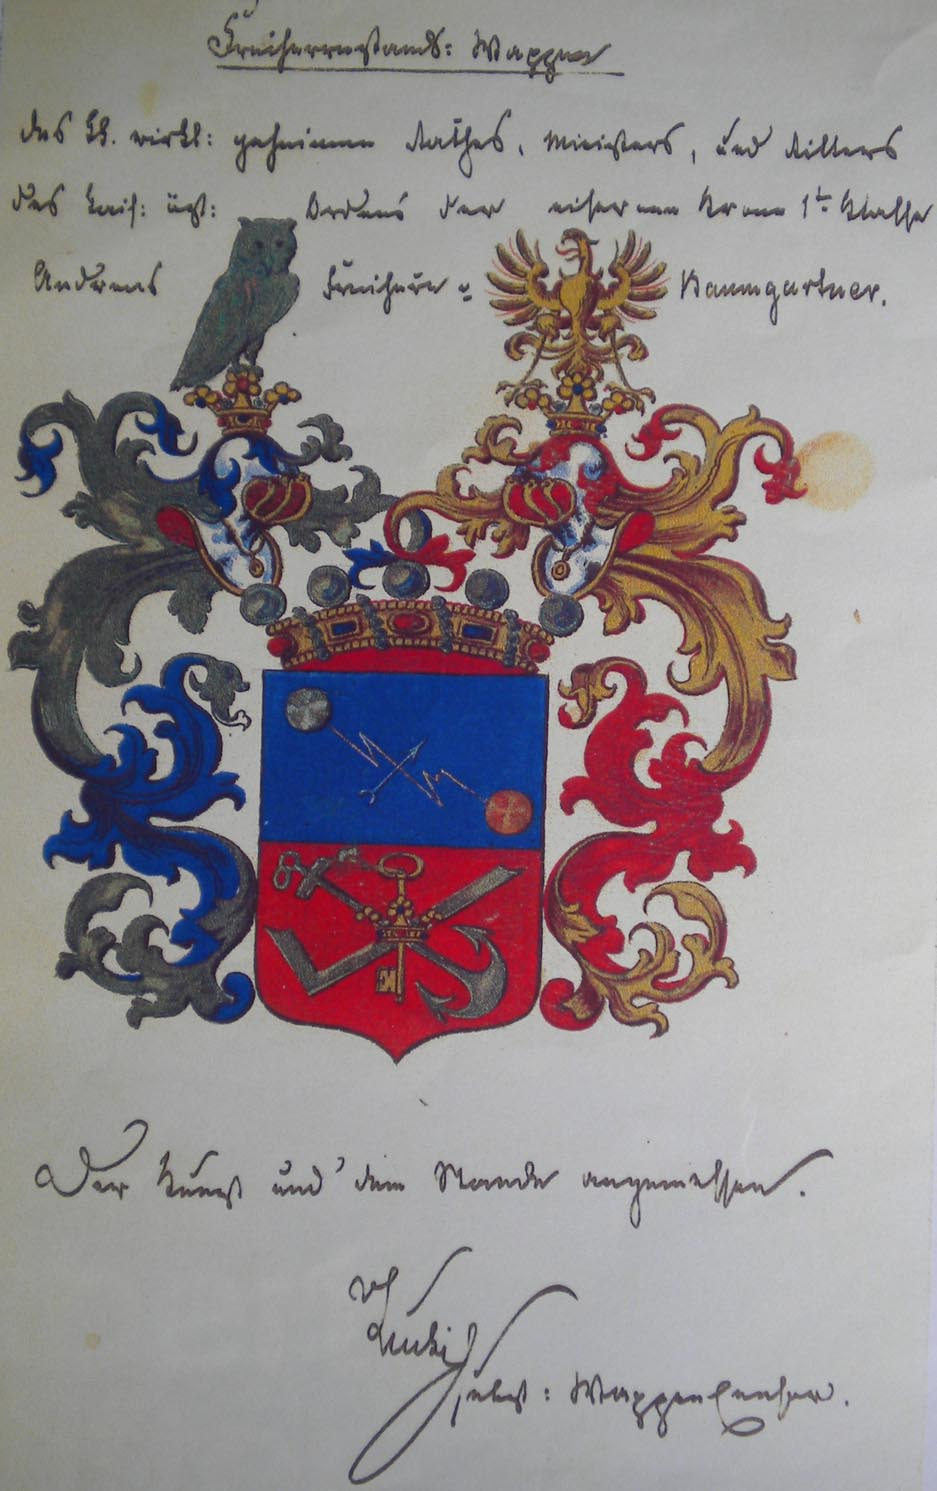 Freiherrnstands: Wappen
des kk. wirkl: geheimen Rathes, Ministers, und Ritters
des kais: öst: Ordens der eisernen Krone 1ter Klasse
Andreas Freiherrn v Baumgartner.
Der Kunst und dem Stande angemessen.
Wappencensor.